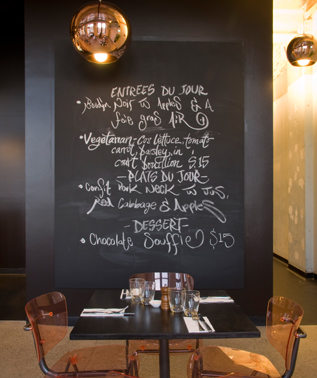 ENTREES DU JOUR
• Boudin Noir w Apples & A
foie gras AIR
• Vegetarian - Cos lettuce, tomato
carrot, parsley, in
court bouillon $15
- PLATS DU JOUR -
• Confit Pork Neck w Jus,
Red Cabbage & Apples
- DESSERT -
• Chocolate Souffle $15